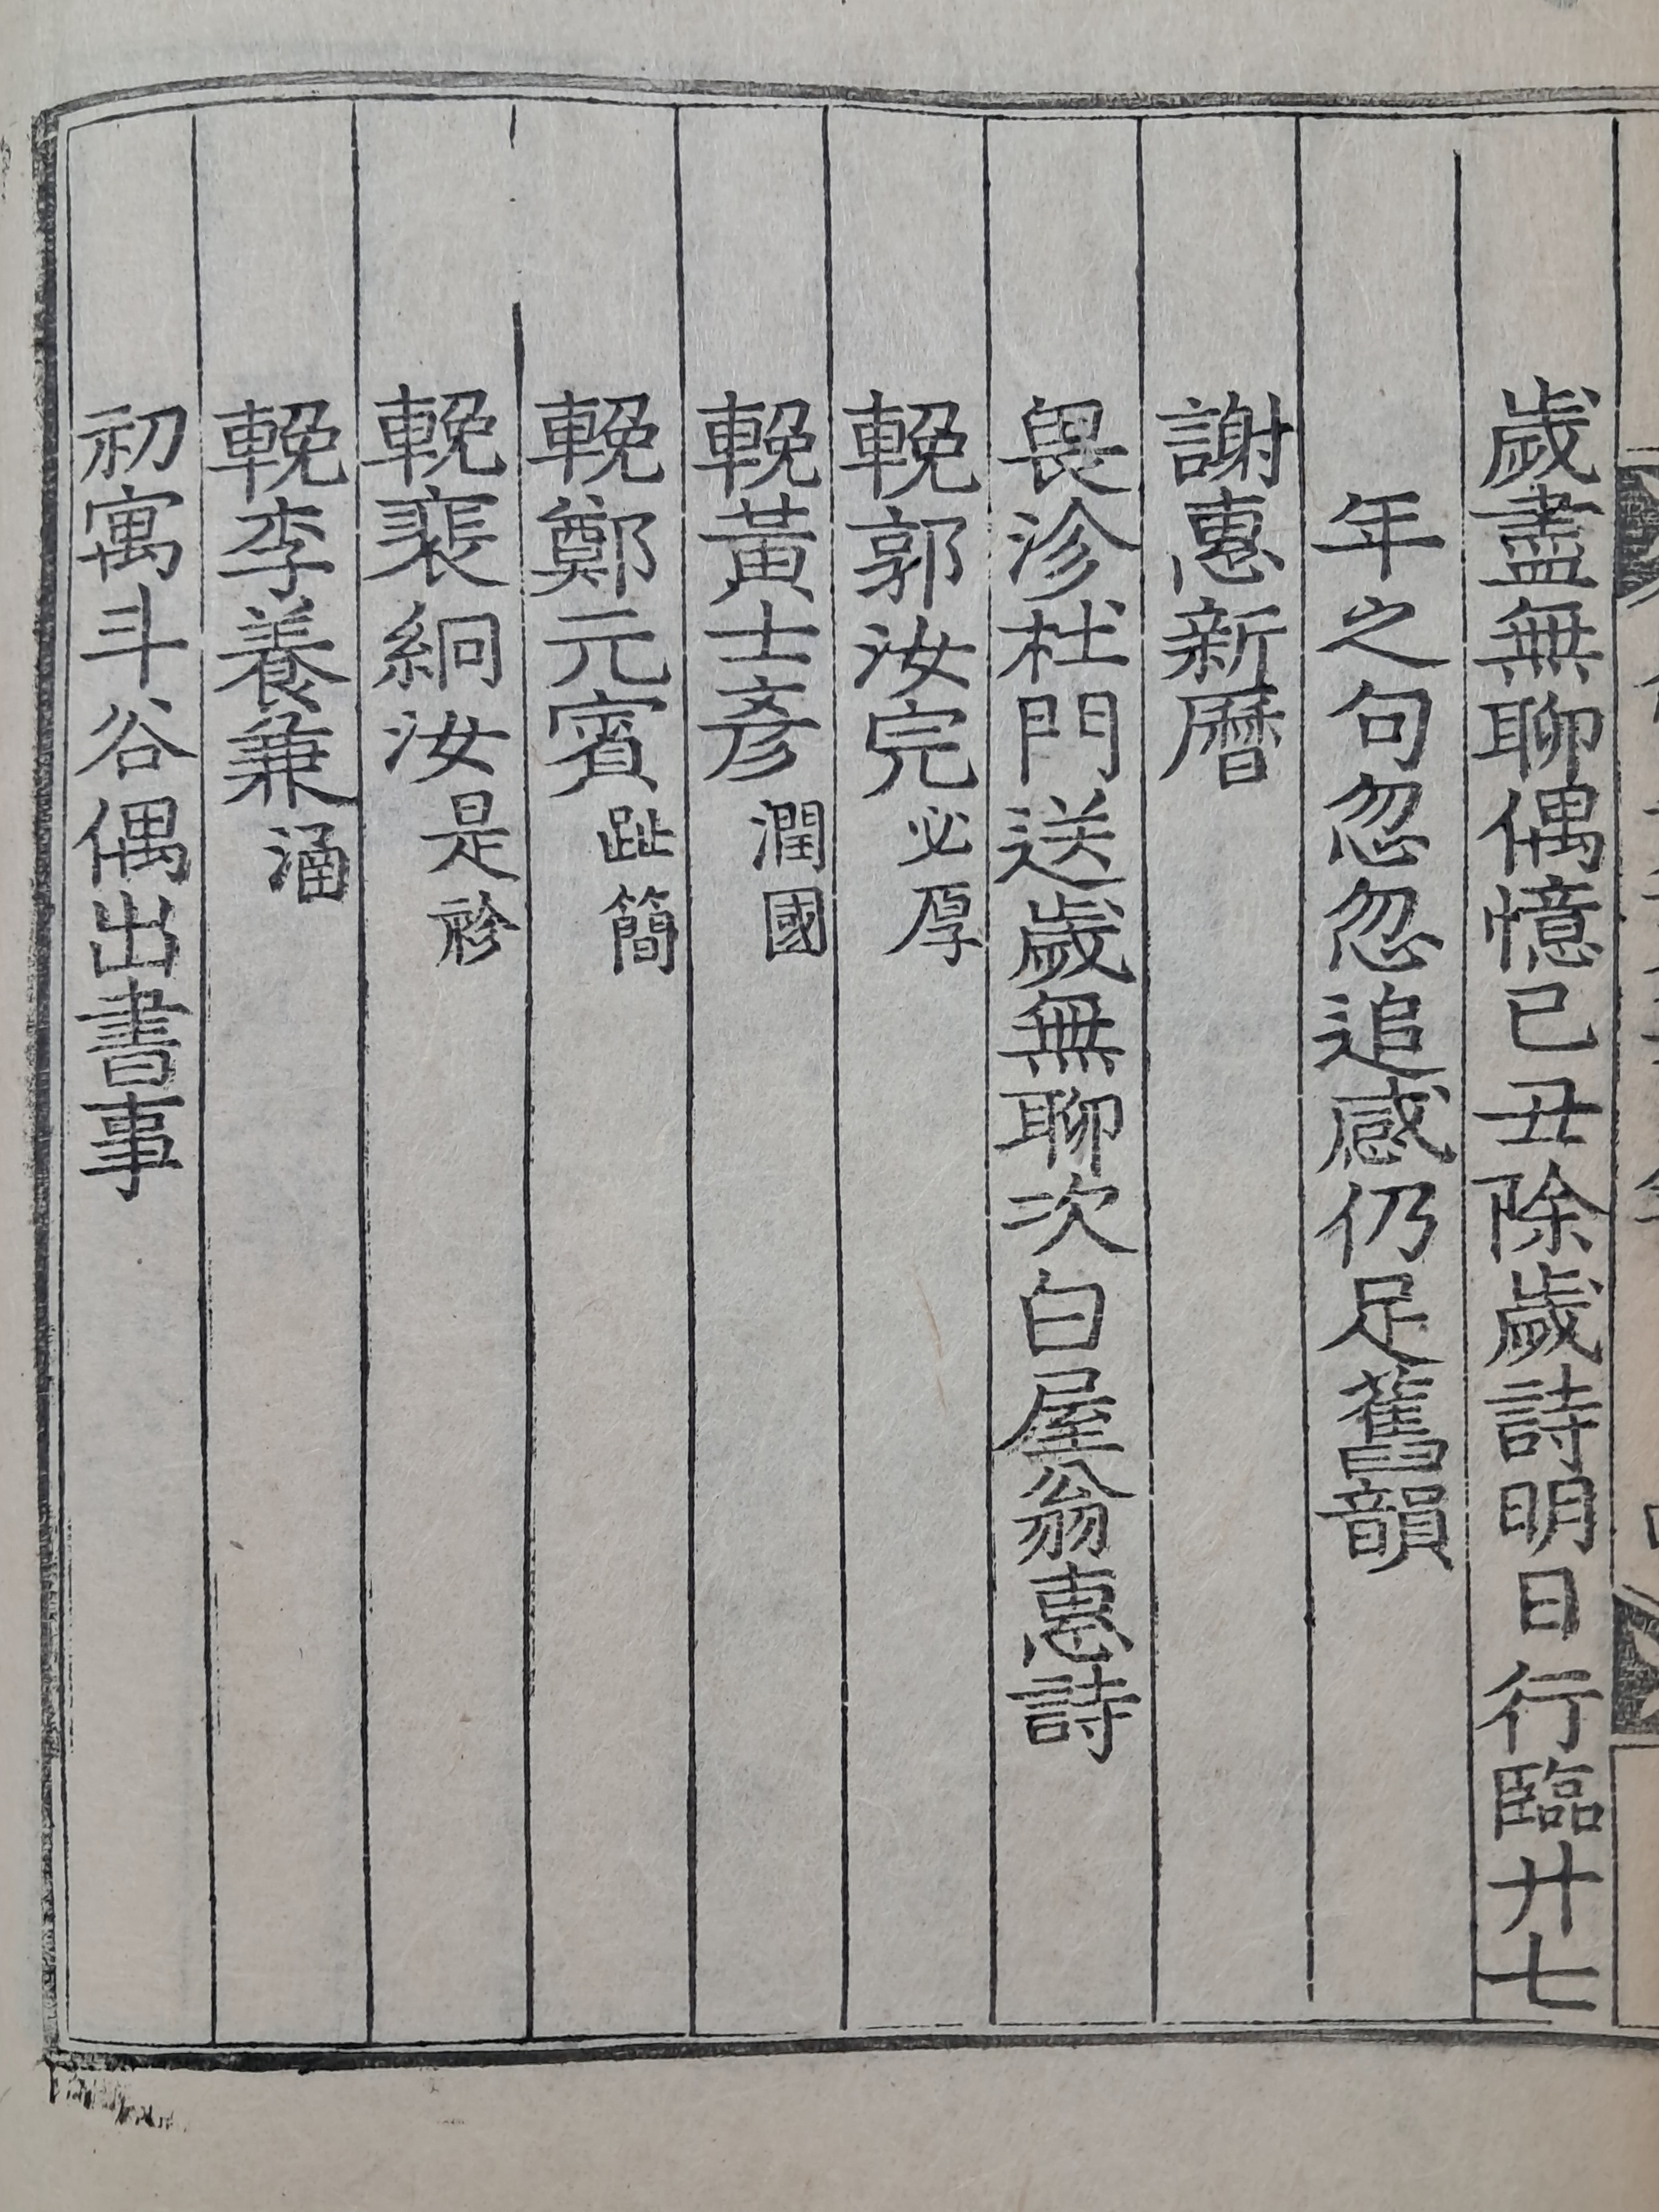 歲盡無聊偶憶己丑除歲詩明日行臨廿七
年之句忽忽追感仍足舊韻
謝惠新曆
畏沴杜門送歲無聊次白屋翁惠詩
輓郭汝完必厚
輓黃士彥潤國
輓鄭元賓趾簡
輓裴絅汝是袗
輓李養兼涵
初寓斗谷偶出書事